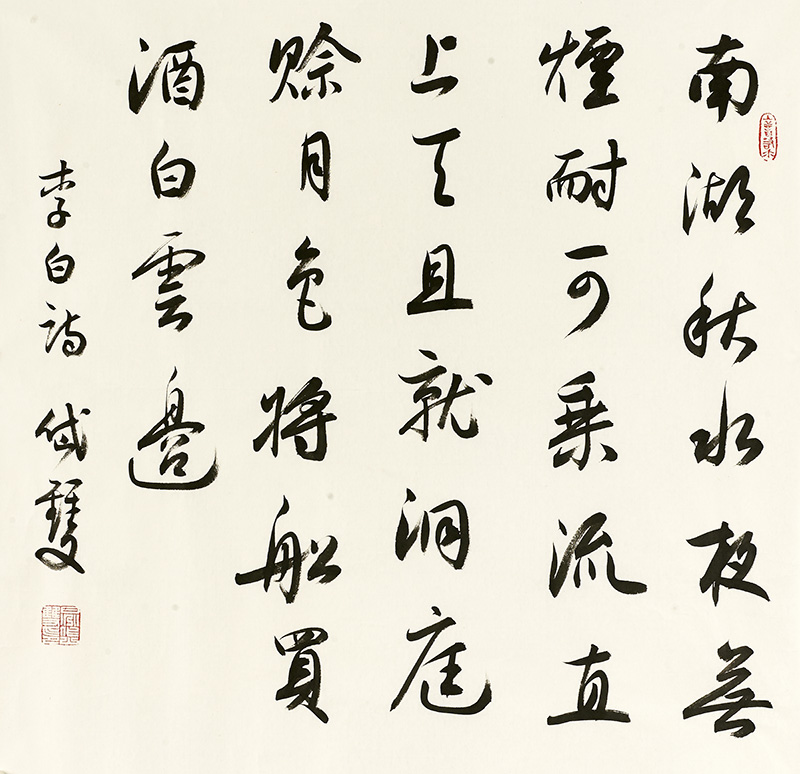 南湖秋水夜無
煙耐可乘流直
上天且就洞庭
賒月色將船買
酒白雲邊
李白詩